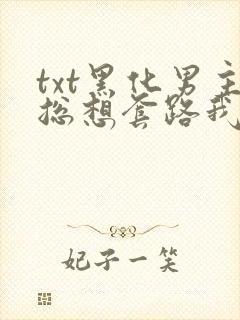 txt黑化男主
总想套路我
妃子一笑